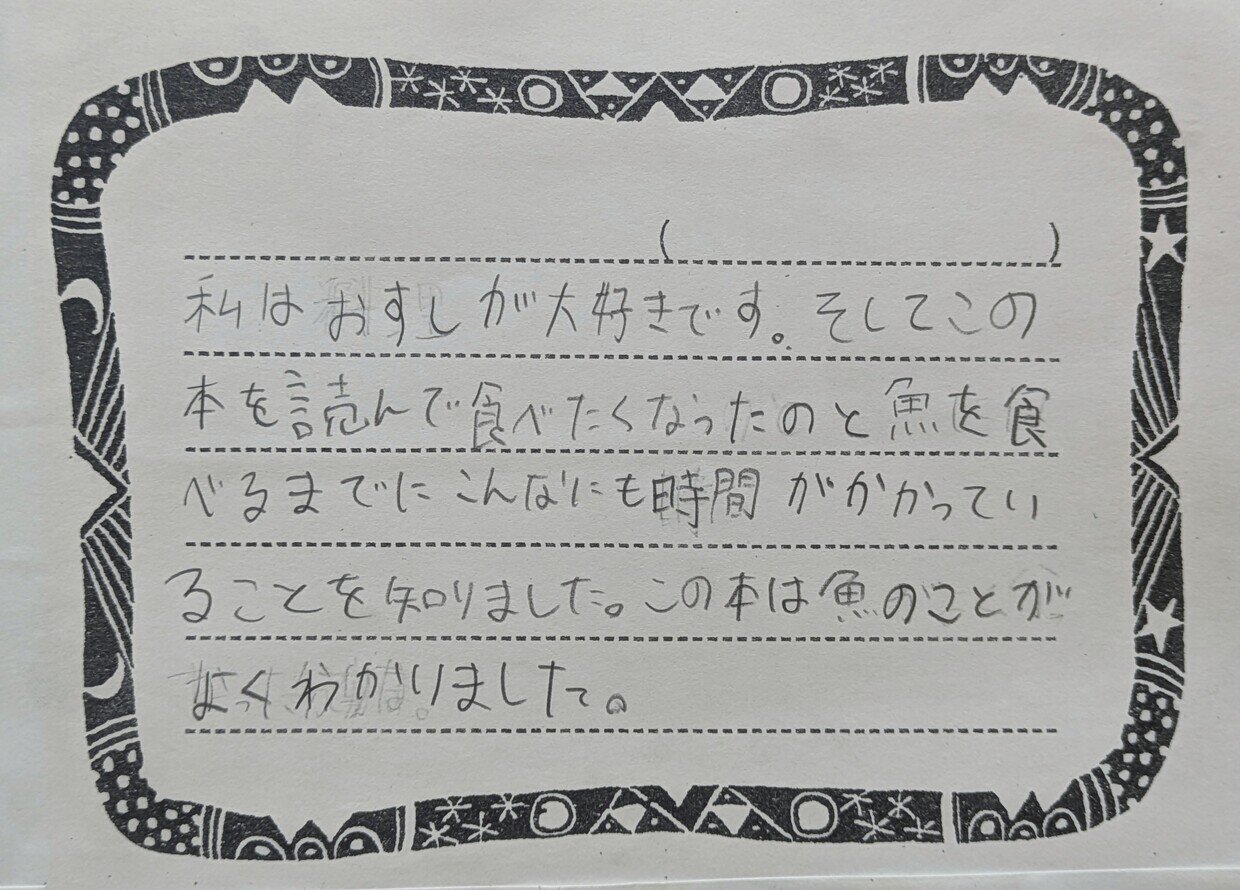 (　　　　　　　　)
私はおすしが大好きです。そしてこの
本を読んで食べたくなったのと魚を食
べるまでにこんなにも時間がかかってい
ることを知りました。この本は魚のことが
よくわかりました。